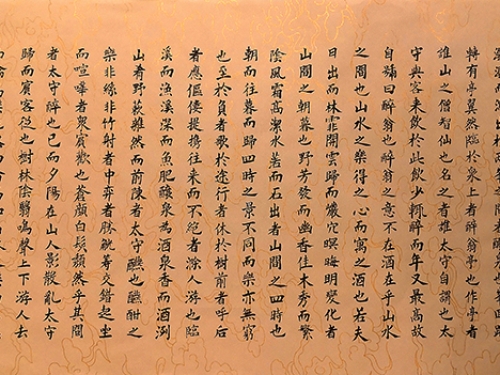 轉有亭翼然臨於泉上者醉翁亭也作亭者
誰山之僧智仙也名之者誰太守自謂也太
守與客來飲於此飲少輒醉而年又最高故
自號曰醉翁也醉翁之意不在酒在乎山水
之間也山水之樂得之心而寓之酒也若夫
日出而林霏開雲歸而巖穴暝晦明變化者
山間之朝暮也野芳發而幽香佳木秀而繁
陰風霜高潔水落而石出者山間之四時也
朝而往暮而歸四時之景不同而樂亦無窮
也至於負者歌於途行者休於樹前者呼后
者應傴僂提攜往來而不絕者滁人游也臨
溪而漁溪深而魚肥釀泉為酒泉香而酒洌
山肴野蔌雜然而前陳者太守醼也醼酣之
樂非絲非竹射者中弈者勝觥籌交錯起坐
而喧嘩者眾賓歡也蒼顏白髮頹然乎其間
者太守醉也已而夕陽在山人影散亂太守
歸而賓客從也樹林陰翳鳴聲上下游人去